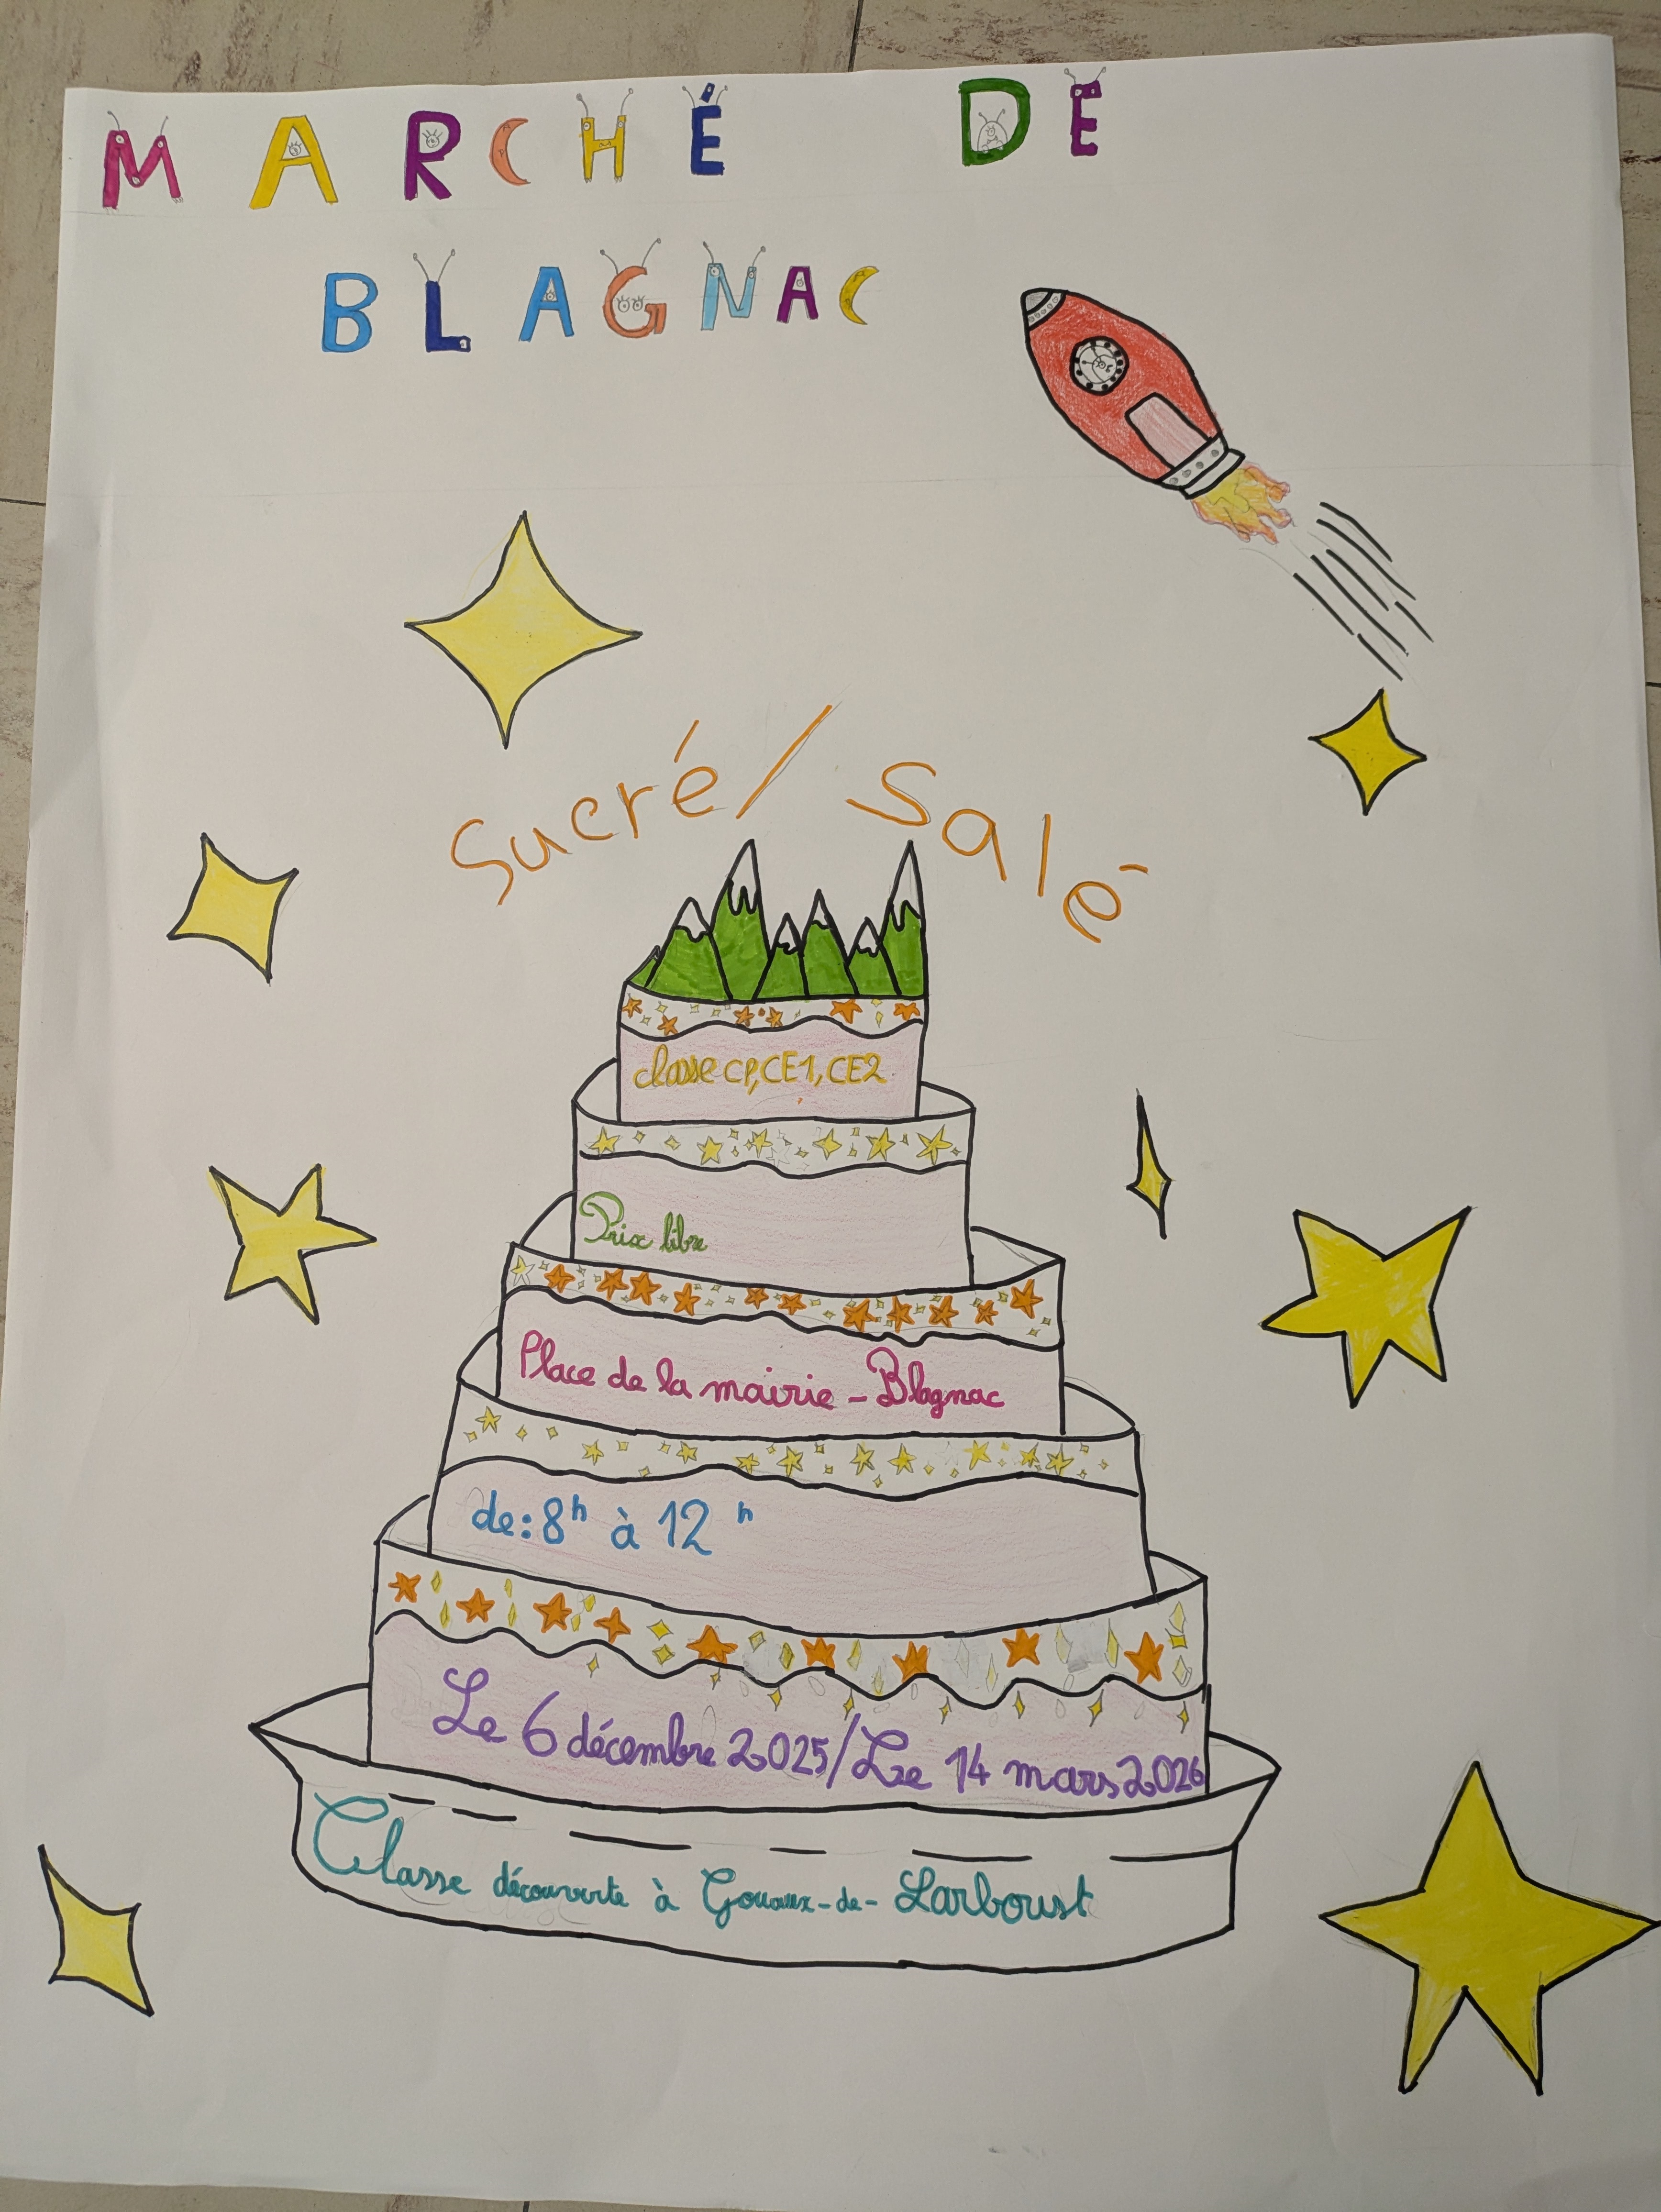 MARCHÉ DE
BLAGNAC
Sucré/Salé
classe CP, CE1, CE2
Prix libre
Place de la mairie - Blagnac
de: 8h à 12h
Le 6 décembre 2025/Le 14 mars 2026
Classe découverte à Gouaux-de-Larboust